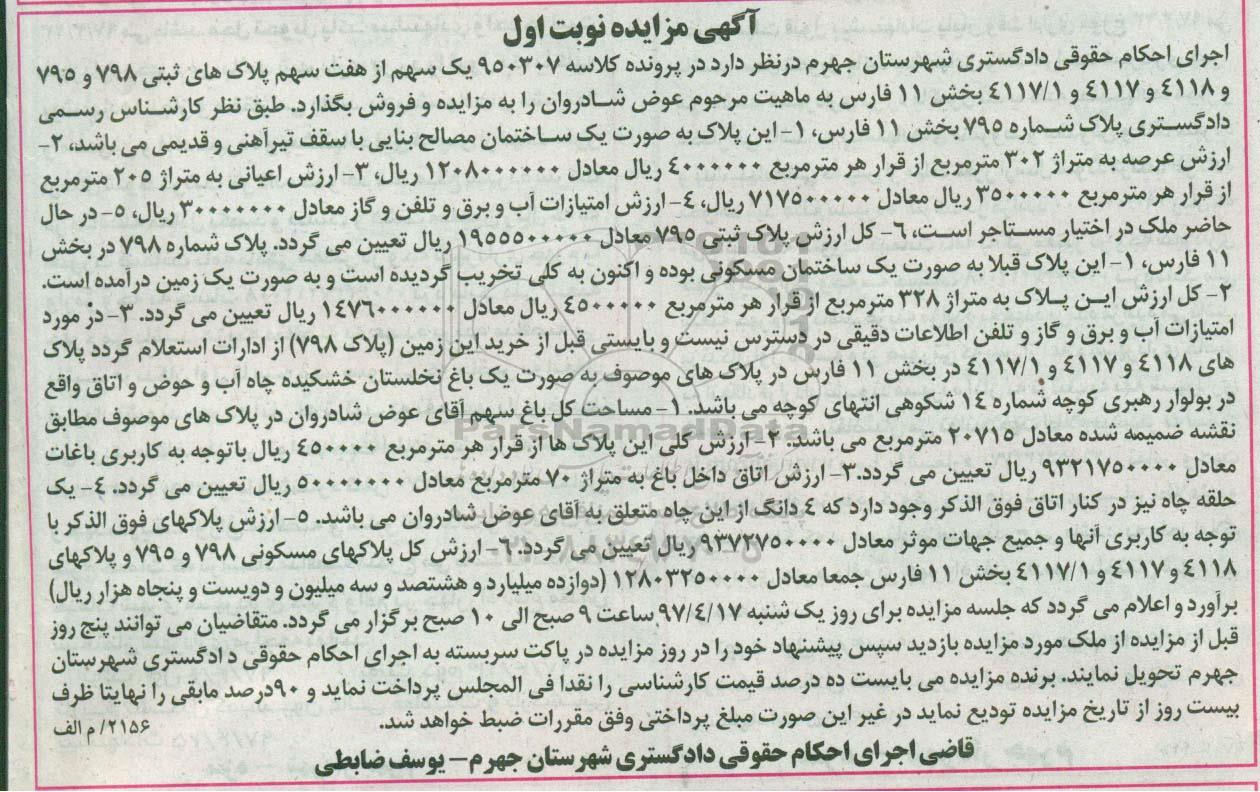 آگهی مزایده نوبت اول
اجرای احکام حقوقی دادگستری شهرستان جهرم درنظر دارد در پرونده کلاسه ۹۵۰۳۰۷ یک سهم از هفت سهم پلاک های ثبتی ۷۹۸ و ۷۹۵
و ۴۱۱۸ و ۴۱۱۷ و ۴۱۱۷/۱ بخش ۱۱ فارس به ماهیت مرحوم عوض شادروان را به مزایده و فروش بگذارد. طبق نظر کارشناس رسمی
دادگستری پلاک شماره ۷۹۵ بخش ۱۱ فارس، ۱- این پلاک به صورت یک ساختمان مصالح بنایی با سقف تیرآهنی و قدیمی می باشد، ۲-
ارزش عرصه به متراژ ۳۰۲ مترمربع از قرار هر مترمربع ۴۰۰۰۰۰۰ ریال معادل ۱۲۰۸۰۰۰۰۰۰ ریال، ۳- ارزش اعیانی به متراژ ۲۰۵ مترمربع
از قرار هر مترمربع ۳۵۰۰۰۰۰ ریال معادل ۷۱۷۵۰۰۰۰۰ ریال، ۴- ارزش امتیازات آب و برق و تلفن و گاز معادل ۳۰۰۰۰۰۰۰ ریال، ۵- در حال
حاضر ملک در اختیار مستاجر است، ۶- کل ارزش پلاک ثبتی ۷۹۵ معادل ۱۹۵۵۵۰۰۰۰۰ ریال تعیین می گردد. پلاک شماره ۷۹۸ در بخش
۱۱ فارس، ۱- این پلاک قبلا به صورت یک ساختمان مسکونی بوده و اکنون به کلی تخریب گردیده است و به صورت یک زمین درآمده است.
۲- کل ارزش این پلاک به متراژ ۳۲۸ مترمربع از قرار هر مترمربع ۴۵۰۰۰۰۰ ریال معادل ۱۴۷۶۰۰۰۰۰۰ ریال تعیین می گردد. ۳- در مورد
امتیازات آب و برق و گاز و تلفن اطلاعات دقیقی در دسترس نیست و بایستی قبل از خرید این زمین (پلاک ۷۹۸) از ادارات استعلام گردد پلاک
های ۴۱۱۸ و ۴۱۱۷ و ۴۱۱۷/۱ در بخش ۱۱ فارس در پلاک های موصوف به صورت یک باغ نخلستان خشکیده چاه آب و حوض و اتاق واقع
در بولوار رهبری کوچه شماره ۱۴ شکوهی انتهای کوچه می باشد. ۱- مساحت کل باغ سهم آقای عوض شادروان در پلاک های موصوف مطابق
نقشه ضمیمه شده معادل ۲۰۷۱۵ مترمربع می باشد. ۲- ارزش کلی این پلاک ها از قرار هر مترمربع ۴۵۰۰۰۰ ریال باتوجه به کاربری باغات
معادل ۹۳۲۱۷۵۰۰۰۰ ریال تعیین می گردد.۳- ارزش اتاق داخل باغ به متراژ ۷۰ مترمربع معادل ۵۰۰۰۰۰۰۰ ریال تعیین می گردد. ۴- یک
حلقه چاه نیز در کنار اتاق فوق الذکر وجود دارد که ۴ دانگ از این چاه متعلق به آقای عوض شادروان می باشد. ۵- ارزش پلاکهای فوق الذکر با
توجه به کاربری آنها و جمیع جهات موثر معادل ۹۳۷۲۷۵۰۰۰۰ ریال تعیین می گردد.۶- ارزش کل پلاکهای مسکونی ۷۹۸ و ۷۹۵ و پلاکهای
۴۱۱۸ و ۴۱۱۷ و ۴۱۱۷/۱ بخش ۱۱ فارس جمعا معادل ۱۲۸۰۳۲۵۰۰۰۰ (دوازده میلیارد و هشتصد و سه میلیون و دویست و پنجاه هزار ریال)
برآورد و اعلام می گردد که جلسه مزایده برای روز یک شنبه ۹۷/۴/۱۷ ساعت ۹ صبح الی ۱۰ صبح برگزار می گردد. متقاضیان می توانند پنج روز
قبل از مزایده از ملک مورد مزایده بازدید سپس پیشنهاد خود را در روز مزایده در پاکت سربسته به اجرای احکام حقوقی دادگستری شهرستان
جهرم تحویل نمایند. برنده مزایده می بایست ده درصد قیمت کارشناسی را نقدا فی المجلس پرداخت نماید و ۹۰درصد مابقی را نهایتا ظرف
بیست روز از تاریخ مزایده تودیع نماید در غیر این صورت مبلغ پرداختی وفق مقررات ضبط خواهد شد.
۲۱۵۶/ م الف
قاضی اجرای احکام حقوقی دادگستری شهرستان جهرم- یوسف ضابطی
ParsNamadData